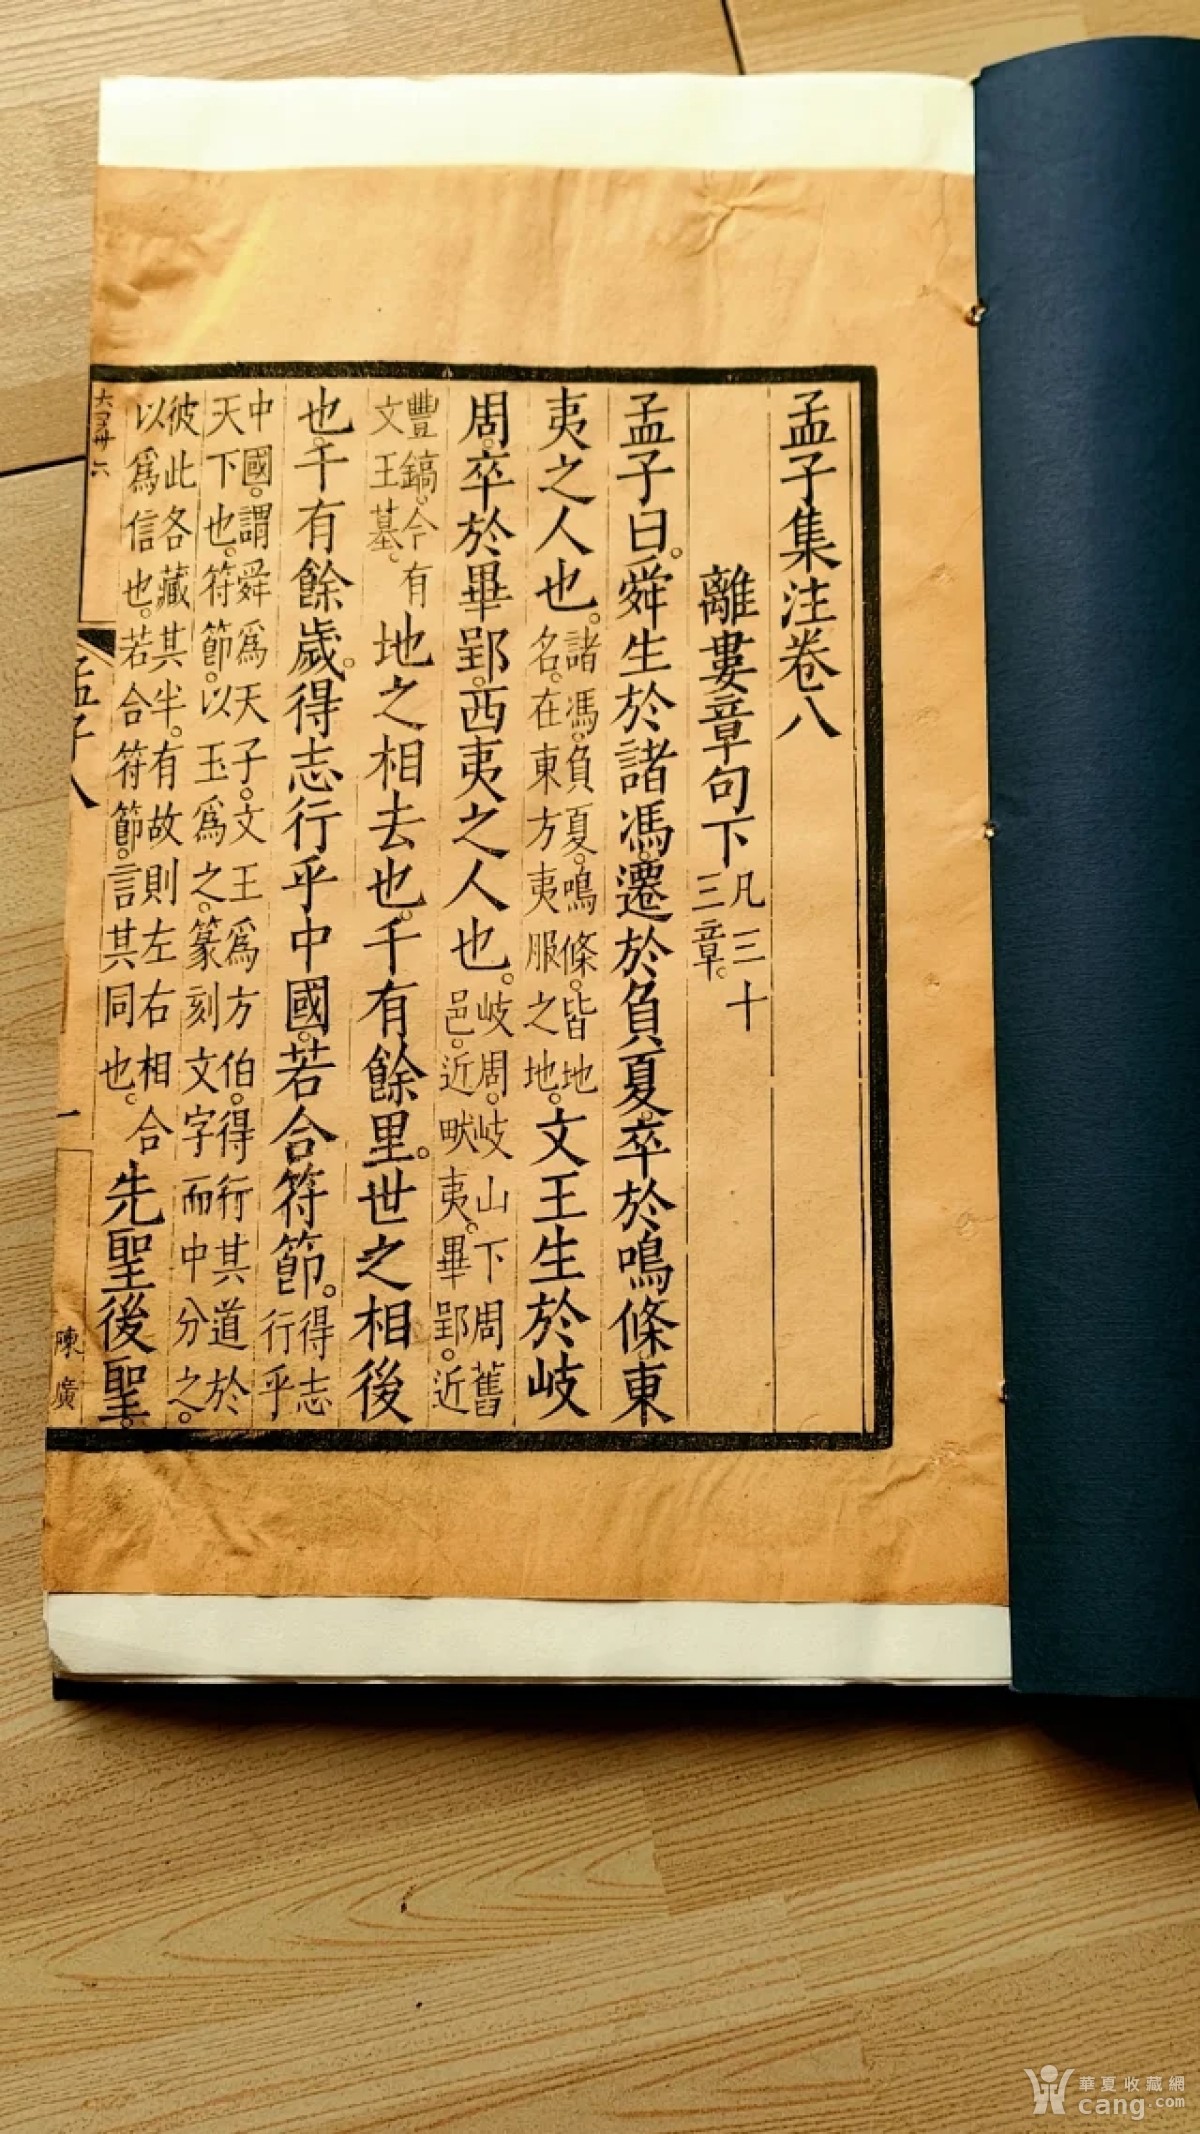 孟子集注卷八
離婁章句下凡三十三章。
孟子曰。舜生於諸馮。遷於負夏。卒於鳴條。東
夷之人也。諸馮。負夏。鳴條。皆地名。在東方夷服之地。文王生於岐
周。卒於畢郢。西夷之人也。岐周。岐山下周舊邑。近畎夷。畢郢。近
豐鎬。今有文王墓。地之相去也。千有餘里。世之相後
也。千有餘歲。得志行乎中國。若合符節。得志行乎
中國。謂舜爲天子。文王爲方伯。得行其道於天下也。符節。以玉爲之。篆刻文字而中分之。
彼此各藏其半。有故則左右相合以爲信也。若合符節。言其同也。先聖後聖。
孟子八
一
陳廣
華夏收藏網
cang.com